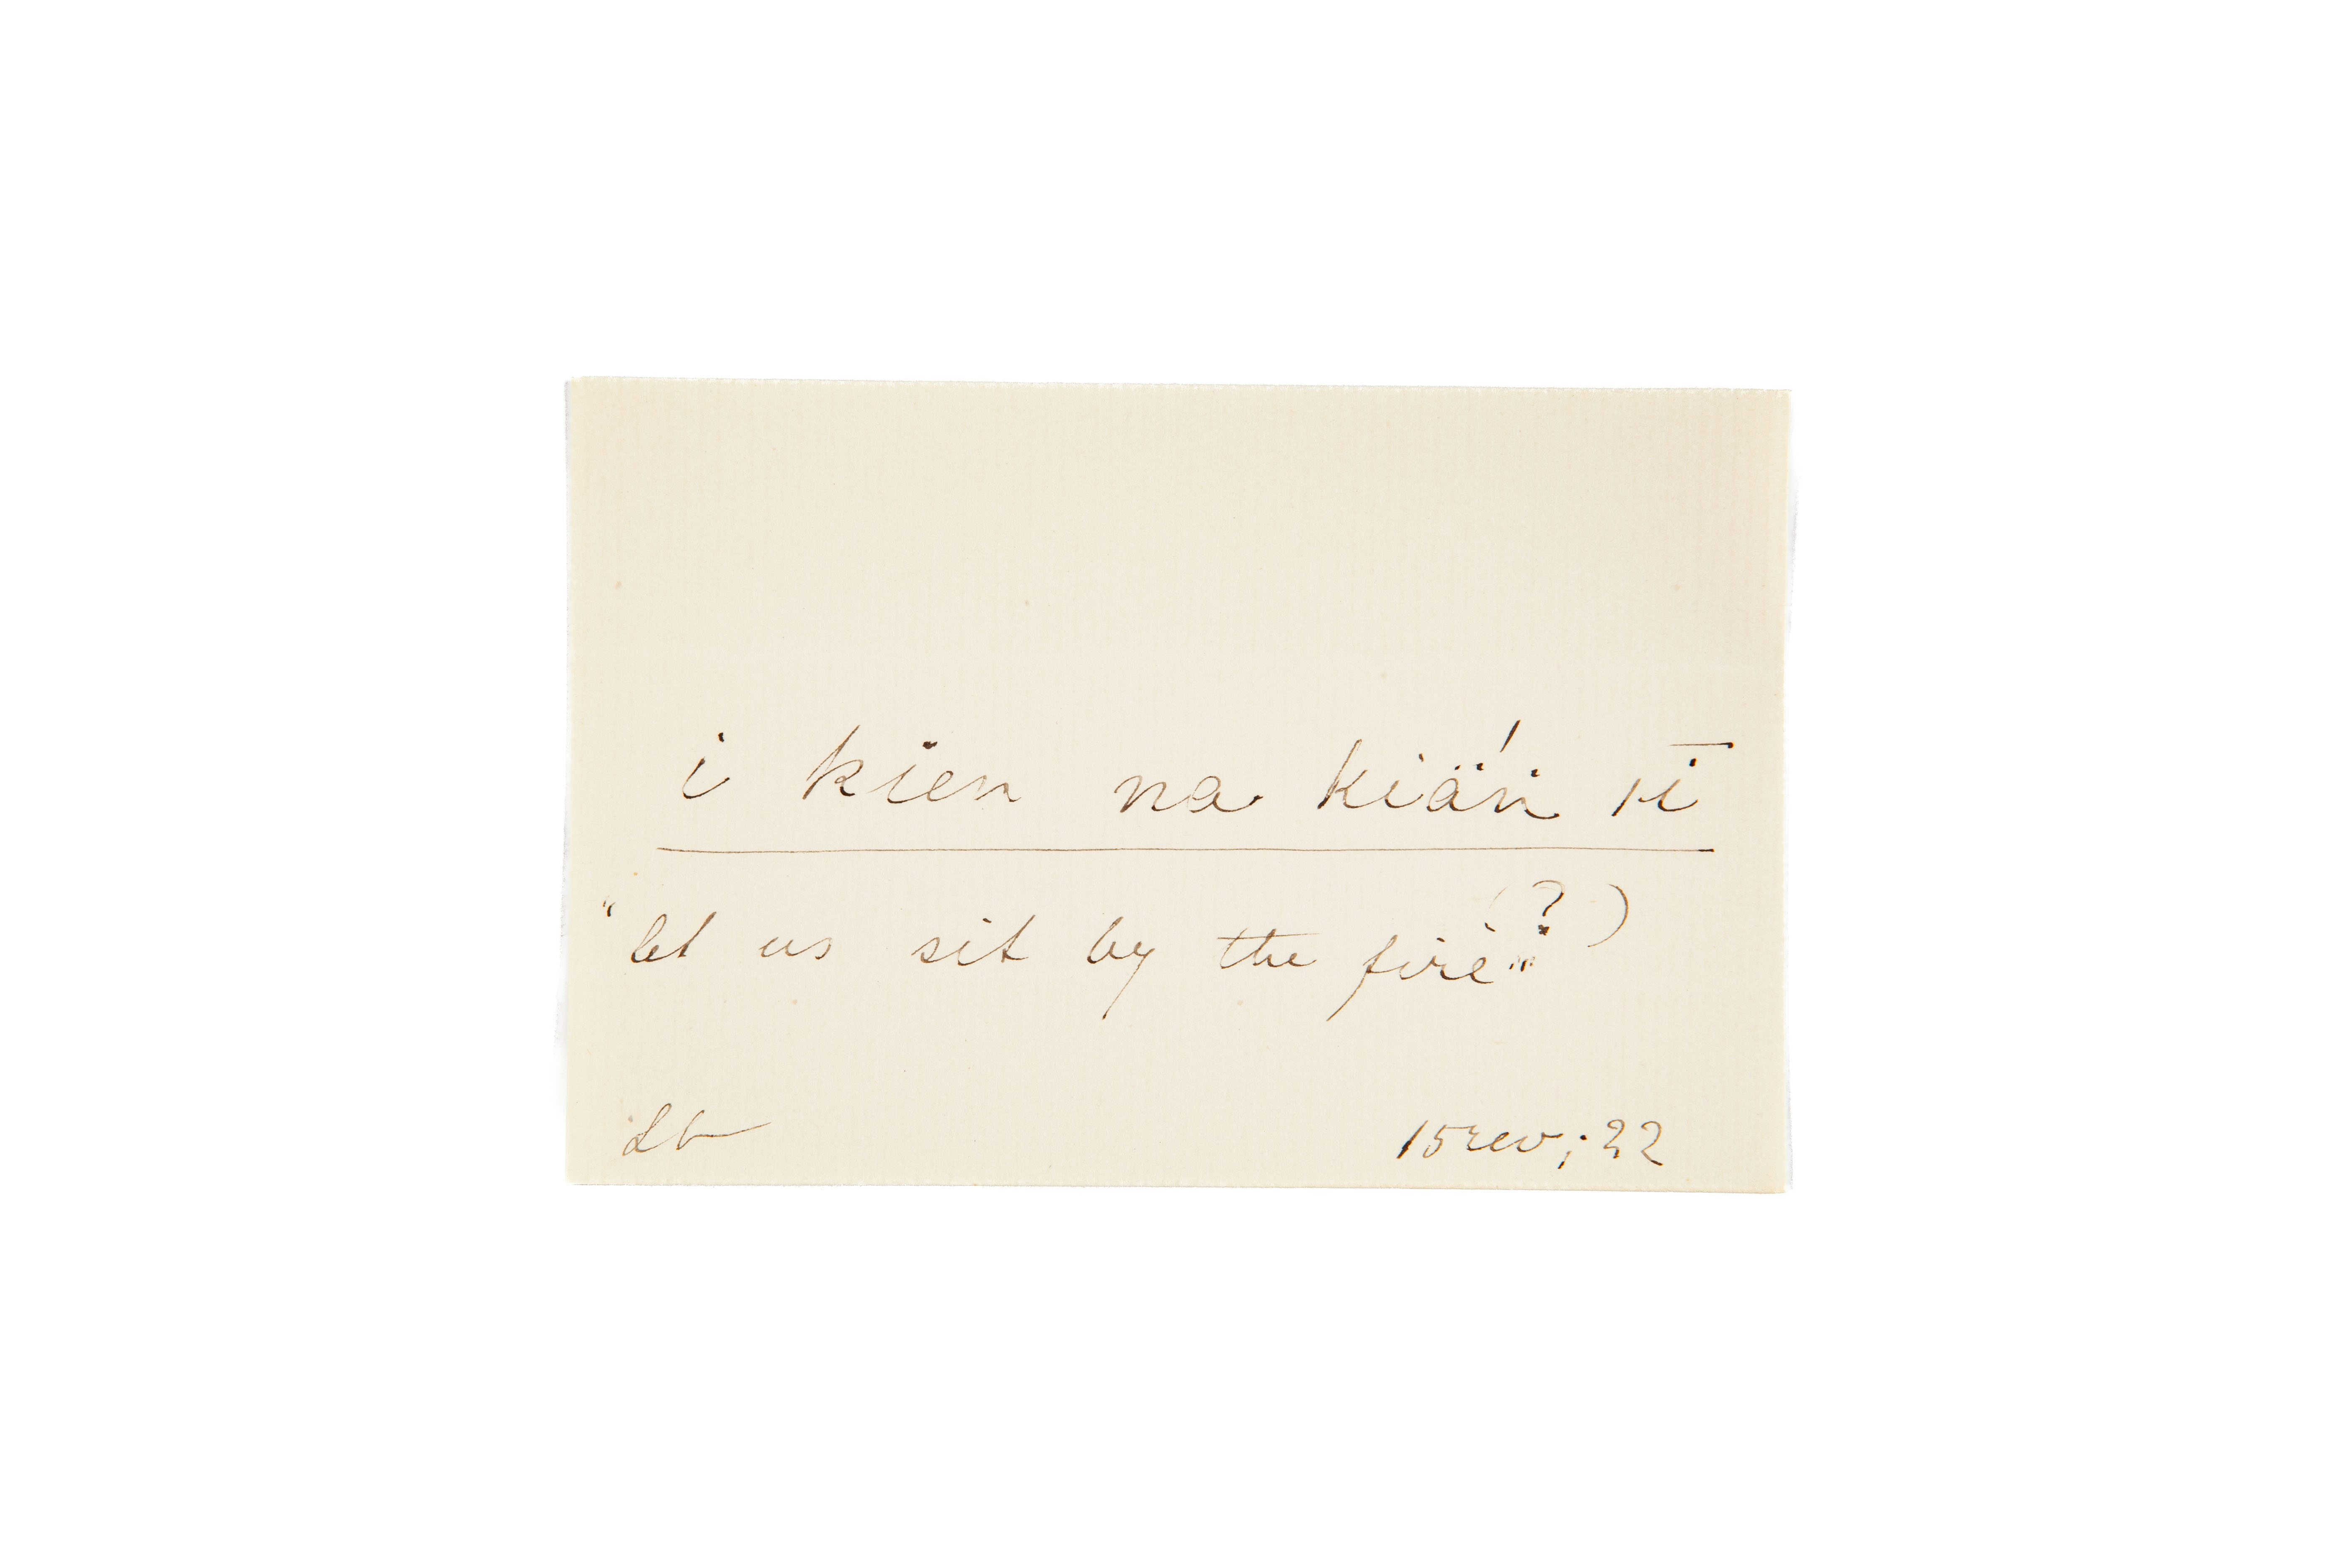 i kien na kiä́ṅ sī
"let us sit by the fire". (?)
Lb 15rev; 22